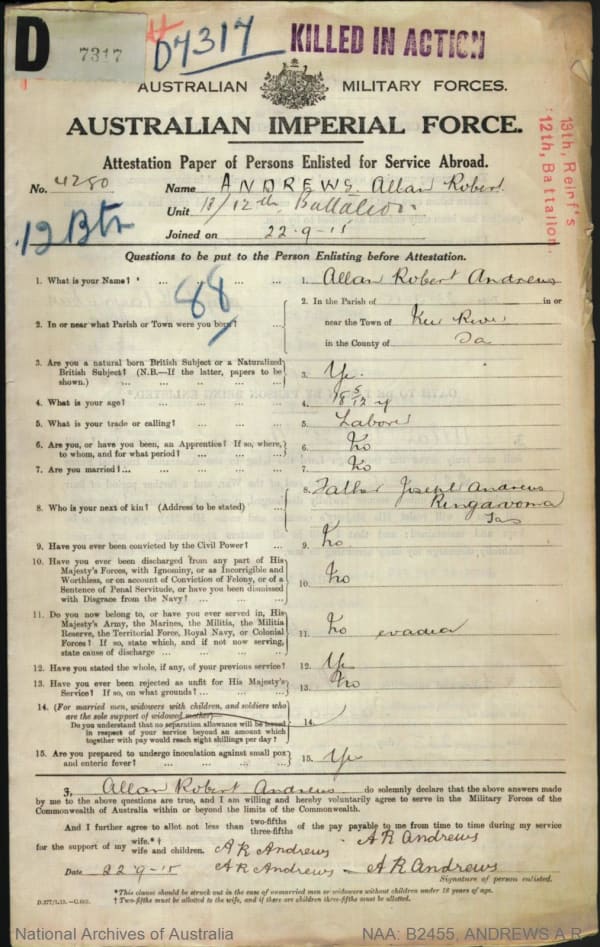 D
7317
D7317
KILLED IN ACTION
AUSTRALIAN MILITARY FORCES.
AUSTRALIAN IMPERIAL FORCE.
Attestation Paper of Persons Enlisted for Service Abroad.
13th, Reinf's
12th, Battalion.
No. 4280 Name ANDREWS Allan Robert
Unit 13/12th, Battalion
Joined on 22.9.15
12 Btn
Questions to be put to the Person Enlisting before Attestation.
1. What is your Name? ... 1. Allan Robert Andrews
88
2. In or near what Parish or Town were you born? ... 2. In the Parish of in or
near the Town of
in the County of
3. Are you a natural born British Subject or a Naturalized
British Subject? (N.B.—If the latter, papers to be
shown.) ... 3. Ye
4. What is your age? ... 4. 18 5/12 y
5. What is your trade or calling? ... 5. Labourer
6. Are you, or have you been, an Apprentice? If so, where,
to whom, and for what period? ... 6. No
7. Are you married? ... 7. No
8. Who is your next of kin? (Address to be stated) ... 8. Father Joseph Andrews
Ringarooma
Tas
9. Have you ever been convicted by the Civil Power? ... 9. No
10. Have you ever been discharged from any part of His
Majesty's Forces, with Ignominy, or as Incorrigible and
Worthless, or on account of Conviction of Felony, or of a
Sentence of Penal Servitude, or have you been dismissed
with Disgrace from the Navy? ... 10. No
11. Do you now belong to, or have you ever served in, His
Majesty's Army, the Marines, the Militia, the Militia
Reserve, the Territorial Force, Royal Navy, or Colonial
Forces? If so, state which, and if not now serving,
state cause of discharge ... 11. No
12. Have you stated the whole, if any, of your previous service? 12. Ye
13. Have you ever been rejected as unfit for His Majesty's
Service? If so, on what grounds? ... 13. No
14. (For married men, widowers with children, and soldiers who
are the sole support of widowed mother)
Do you understand that no separation allowance will be issued
in respect of your service beyond an amount which
together with pay would reach eight shillings per day? 14.
15. Are you prepared to undergo inoculation against small pox
and enteric fever? ... 15. Ye
I, Allan Robert Andrews do solemnly declare that the above answers made
by me to the above questions are true, and I am willing and hereby voluntarily agree to serve in the Military Forces of the
Commonwealth of Australia within or beyond the limits of the Commonwealth.
And I further agree to allot not less than two-fifths three-fifths of the pay payable to me from time to time during my service
for the support of my wife.*† wife and children. A R Andrews - A R Andrews
Date 22.9.15 A R Andrews - A R Andrews
Signature of person enlisted.
*This clause should be struck out in the case of unmarried men or widowers without children under 16 years of age.
† Two-fifths must be allotted to the wife, and if there are children three-fifths must be allotted.
National Archives of Australia NAA: B2455, ANDREWS A R